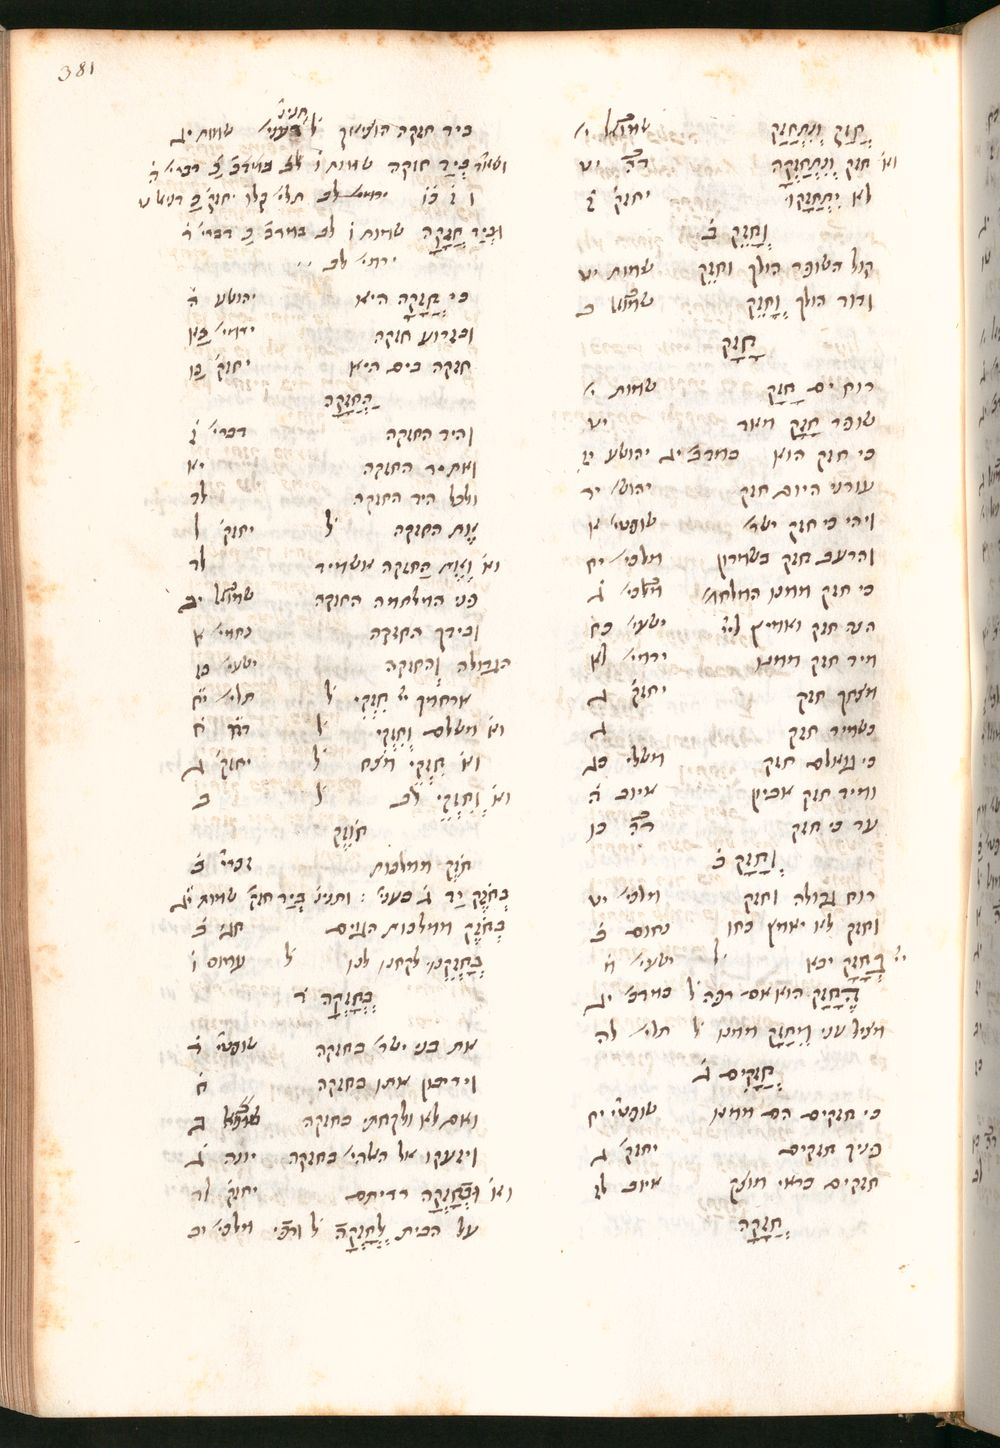 381
חֲזַק וְנִתְחַזַּק שמואל י
וא׳ חזק וְנִתְחַזְּקָה דה יט
לא יִתְחַזָּקוּ יחזק׳ ז
וְחָזֵק ב
קול השופר הולך וחזק שמות יט
ודוד הולך וְחָזֵק שמואל ב
חָזָק
רוח ים חָזָק שמות י
שופר חָזָק מאד יט
כי חזק הוא במדב׳ יג יהושע יז
עודני היום חזק יהוש׳ יד
ויהי כי חזק ישר׳ שופטי׳ א
והרעב חזק בשמרון מלכי׳ יח
כי חזק ממנו המלחמ׳ מלכי׳ ג
הנה חזק ואמיץ ליי׳ ישעי׳ כח
מיד חזק ממנו ירמי׳ לא
מצחך חזק יחזק׳ ג
כשמיר חזק ג
כי גואלם חזק משלי כג
ומיד חזק אביון איוב ה
עד כי חזק דה כו
וְחָזָק ב
רוח גדולה וחזק מלכי׳ יט
וחזק לא יאמץ כחו נחום ב
יי׳ בְּחָזָק יבא ל ישעי׳ מ
הֶחָזָק הוא אם רפה ל במדב׳ יג
מציל עני מֵחָזָק ממנו ל תלי׳ לה
חֲזָקִים ג
כי חזקים הם ממנו שופטי׳ יח
פניך חזקים יחזק׳ ג
חזקים כראי מוצק איוב לז
חֲזָקָה
ביד חזקה הוציאך ל בעני׳ שמות יג
חניני׳
ושאר בְּיָד חזקה שמות ו לב במדב׳ כ דברי׳ ה
ו ז כו ירמי׳ לב תלי׳ קלו יחזק׳ כ דניאל ט
וּבְיָד חֲזָקָה שמות ו לב במדב׳ כ דברי׳ ד
ירמי׳ לב
כי חֲזָקָה היא יהושע ה
ובזרוע חזקה ירמי׳ כא
חזקה בים היא יחזק׳ כו
הַחֲזָקָה
והיד החזקה דברי׳ ז
ואת יד החזקה יא
ולכל היד החזקה לד
אֶת החזקה ל יחזק׳ ל
וא׳ וְאֶת הַחזקה אשמיד לד
פני המלחמה החזקה שמואל יב
ובידך החזקה נחמי׳ א
הגדולה וְהחזקה ישעי׳ כז
ארחמך יי׳ חִזְקִי ל תלי׳ יח
וא׳ משלם וְחִזְקִי ל דה ח
וא׳ חִזְקֵי מצח ל יחזק׳ ג
וא׳ וְחִזְקֵי לב ל ב
חֹזֶק
חֹזֶק ממלכות זכרי׳ ב
בְּחֹזֶק יָד ג בעני׳ : ותנינ׳ בְּיַד חזק׳ שמות יג
בְּחֹזֶק ממלכות הגוים חגי ב
בְּחָזְקֵנוּ לקחנו לנו ל עמוס ו
בְּחָזְקָה ד
את בני ישר׳ בחזקה שופטי׳ ד
ויריבון אתו בחזקה ח
ואם לא ולקחתי בחזקה שמואל ב
ויזעקו אל אלהי׳ בחזקה יונה ג
וא׳ וּבְחָזְקָה רדיתם יחזק׳ לד
על הבית לְחָזְקָה ל ורפי׳ מלכי׳ יב